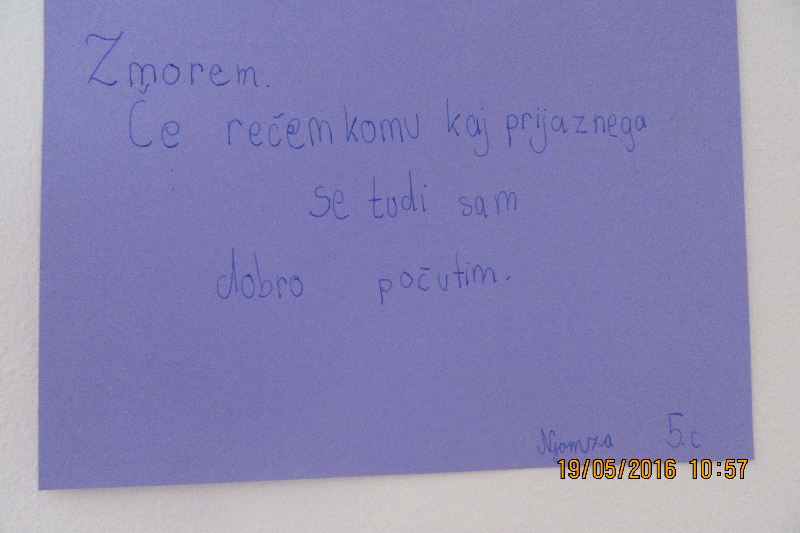 Zmorem.
Če rečem komu kaj prijaznega
se tudi sam
dobro počutim.
Njomza 5.c
19/05/2016 10:57